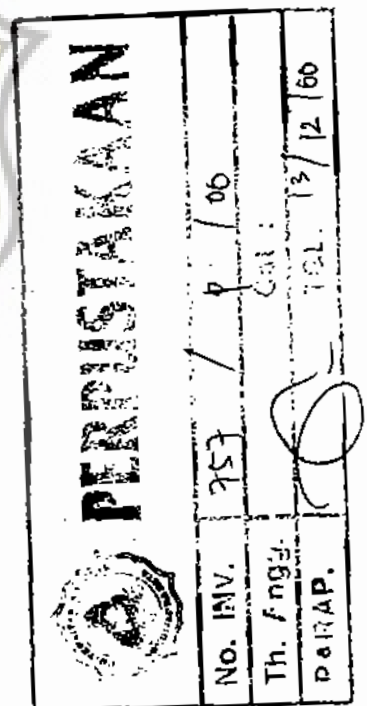 PERPUSTAKAAN
No. INV. 757 / / 06
Th. Angg. Cat :
PARAP. TGL. 13/12/06